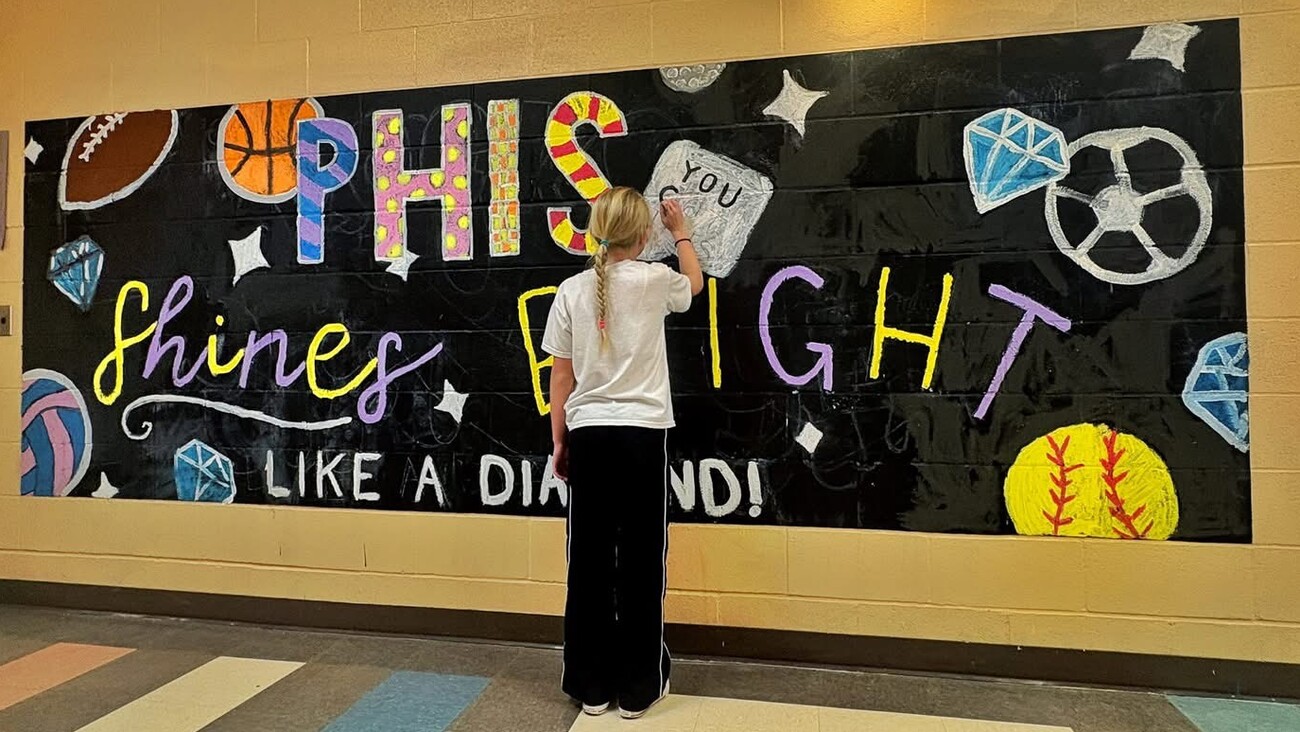 PHIS
YOU
Shines B IGHT
LIKE A DIA ND!